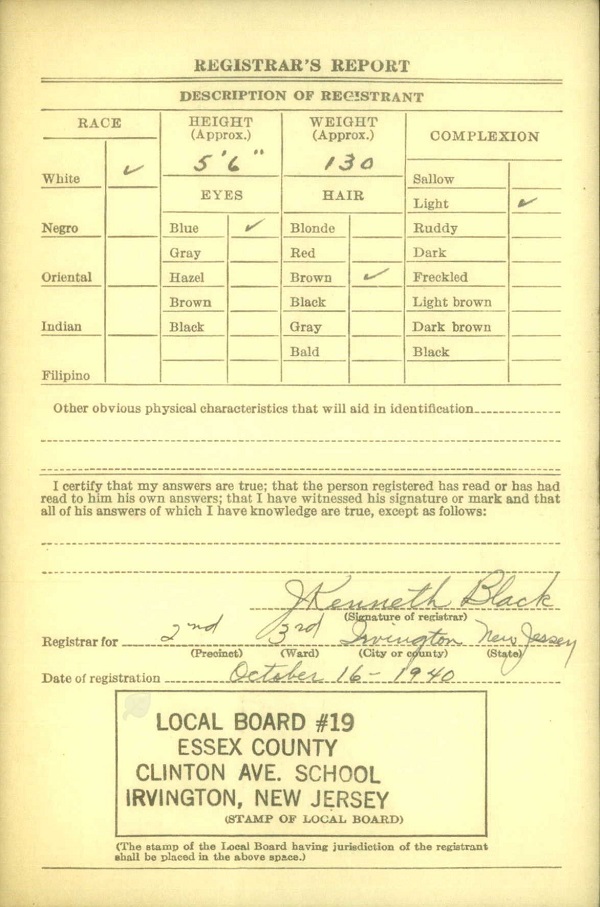 REGISTRAR'S REPORT
DESCRIPTION OF REGISTRANT
RACE
HEIGHT
(Approx.)
WEIGHT
(Approx.)
COMPLEXION
5'6"
130
White ✓
Sallow
EYES
HAIR
Light ✓
Negro
Blue ✓
Blonde
Ruddy
Gray
Red
Dark
Oriental
Hazel
Brown ✓
Freckled
Brown
Black
Light brown
Indian
Black
Gray
Dark brown
Bald
Black
Filipino
Other obvious physical characteristics that will aid in identification
I certify that my answers are true; that the person registered has read or has had
read to him his own answers; that I have witnessed his signature or mark and that
all of his answers of which I have knowledge are true, except as follows:
J Kenneth Black
(Signature of registrar)
Registrar for 2nd 3rd Irvington New Jersey
(Precinct) (Ward) (City or county) (State)
Date of registration October 16 - 1940
LOCAL BOARD #19
ESSEX COUNTY
CLINTON AVE. SCHOOL
IRVINGTON, NEW JERSEY
(STAMP OF LOCAL BOARD)
(The stamp of the Local Board having jurisdiction of the registrant
shall be placed in the above space.)